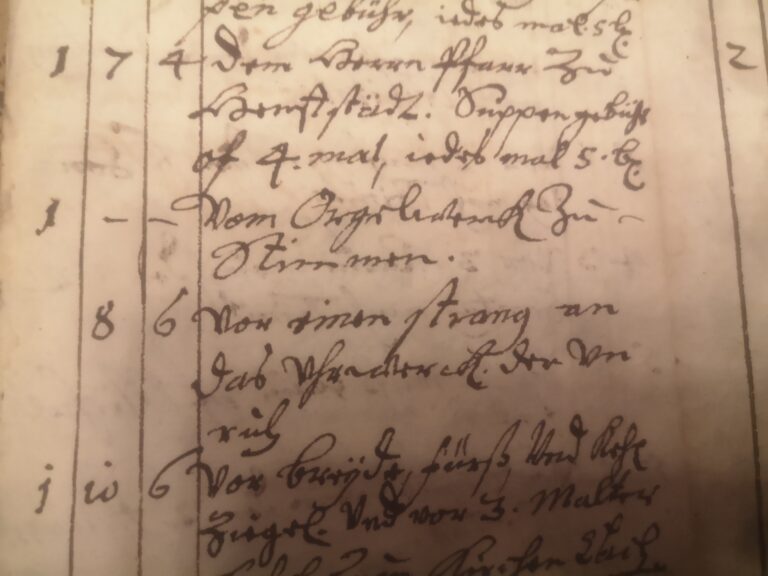 pen gebühr, iedes mal 5 bz.
1 7 4 dem Herrn Pfarr zu 2
Henfstädt. Suppen gebühr
of 4. mal, iedes mal 5. bz.
1 – – Vom Orgelwerck zu
Stimmen.
8 6 Vor einen strang an
das Uhrwerck. der Un
ruh
1 10 6 Vor breyde, fürst Und Kehl
Ziegel. Und vor 3. Malter
Kirchen Dach